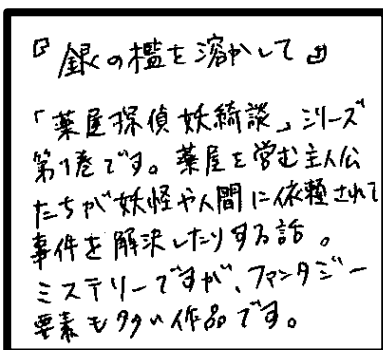 『銀の檻を溶かして』
「薬屋探偵妖綺談」シリーズ
第1巻です。薬屋を営む主人公
たちが妖怪や人間に依頼されて
事件を解決したりする話。
ミステリーですが、ファンタジー
要素も多い作品です。